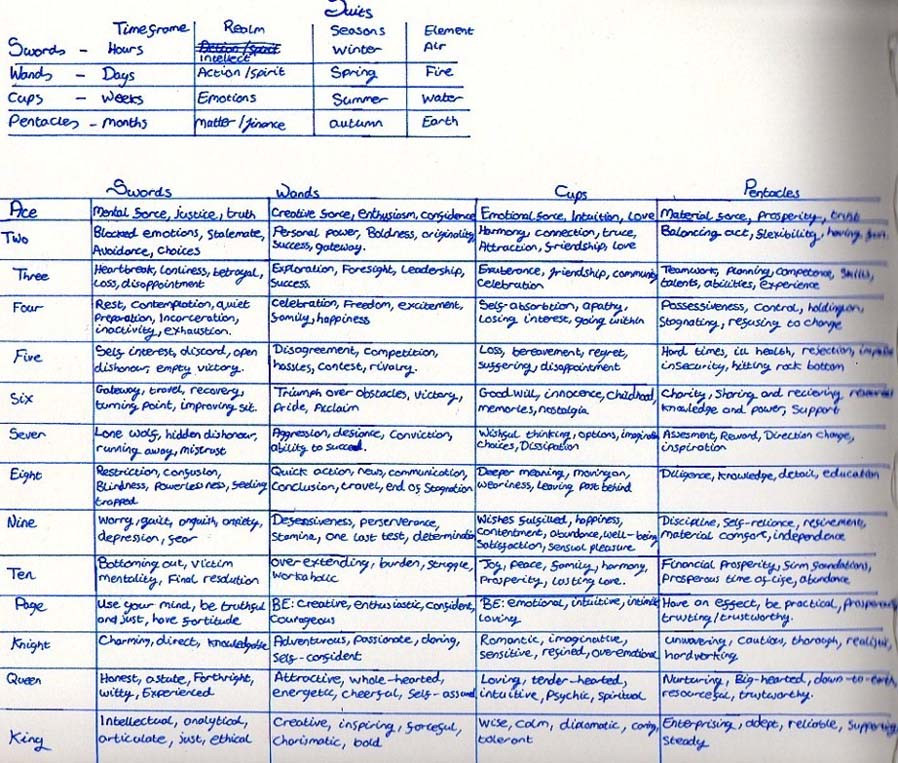 Suits
Timeframe Realm Seasons Element
Swords - Hours Intellect Winter Air
Wands - Days Action/spirit Spring Fire
Cups - weeks Emotions Summer Water
Pentacles - months matter/finance autumn Earth
Swords Wands Cups Pentacles
Ace
Mental force, justice, truth
Creative force, enthusiasm, confidence
Emotional force, Intuition, love
Material force, Prosperity, trust
Two
Blocked emotions, Stalemate,
Avoidance, choices
Personal power, Boldness, originality
success, gateway.
Harmony, connection, truce,
Attraction, friendship, love
Balancing act, flexibility, having fun.
Three
Heartbreak, lonliness, betrayal,
Loss, disappointment
Exploration, Foresight, Leadership,
Success.
Exuberance, friendship, community
celebration
Teamwork, planning, competence, skills,
talents, abilities, experience
Four
Rest, Contemplation, quiet
Preparation, Incarceration,
inactivity, exhaustion.
Celebration, Freedom, excitement,
family, happiness
Self-absorbtion, apathy,
Losing interest, going within
Possessiveness, Control, holding on,
Stagnating, refusing to change
Five
Self interest, discord, open
dishonour, empty victory.
Disagreement, Competition,
hassles, Contest, rivalry.
Loss, bereavement, regret,
suffering, disappointment
Hard times, ill health, rejection,
insecurity, hitting rock bottom
Six
Gateway, travel, recovery,
turning point, improving sit.
Triumph over obstacles, victory,
Pride, Acclaim
Good will, innocence, childhood,
memories, nostalgia
Charity, Sharing and recieving,
knowledge and power, Support
Seven
Lone wolf, hidden dishonour,
running away, mistrust
Aggression, defiance, Conviction,
ability to succeed.
Wishful thinking, options,
choices, Dissipation
Assesment, Reward, Direction change,
inspiration
Eight
Restriction, confusion,
Blindness, Powerlessness, feeling
trapped
Quick action, news, communication,
Conclusion, travel, end of Stagnation
Deeper meaning, moving on,
weariness, leaving past behind
Diligence, knowledge, detail, education
Nine
Worry, guilt, anguish, anxiety,
depression, fear
Defensiveness, perserverance,
Stamina, one last test, determination
Wishes fulfilled, happiness,
contentment, abundance, well-being
Satisfaction, sensual pleasure
Discipline, Self-reliance, refinement,
material comfort, independence
Ten
Bottoming out, victim
mentality, Final resolution
over extending, burden, struggle,
workaholic
Joy, peace, family, harmony,
Prosperity, lasting love.
Financial Prosperity, firm foundations,
Prosperous time of life, abundance
Page
Use your mind, be truthful
and just, have fortitude
BE: Creative, enthusiastic, confident,
Courageous
BE: emotional, intuitive, intimate
Loving
Have an effect, be practical, Prosperous
trusting/trustworthy.
Knight
Charming, direct, knowledgable
Adventurous, Passionate, daring,
self-confident
Romantic, imaginative,
sensitive, refined, overemotional
unwavering, cautious, thorough, realistic,
hardworking.
Queen
Honest, astate, Forthright,
witty, Experienced
Attractive, whole-hearted,
energetic, cheerful, self-assured
Loving, tender-hearted,
intuitive, Psychic, spiritual
Nurturing, Big-hearted, down-to-earth,
resourceful, trustworthy.
King
Intellectual, analytical,
articulate, just, ethical
Creative, inspiring, forceful,
Charismatic, bold
wise, Calm, diplomatic, caring,
tolerant
Enterprising, adept, reliable, supporting
steady